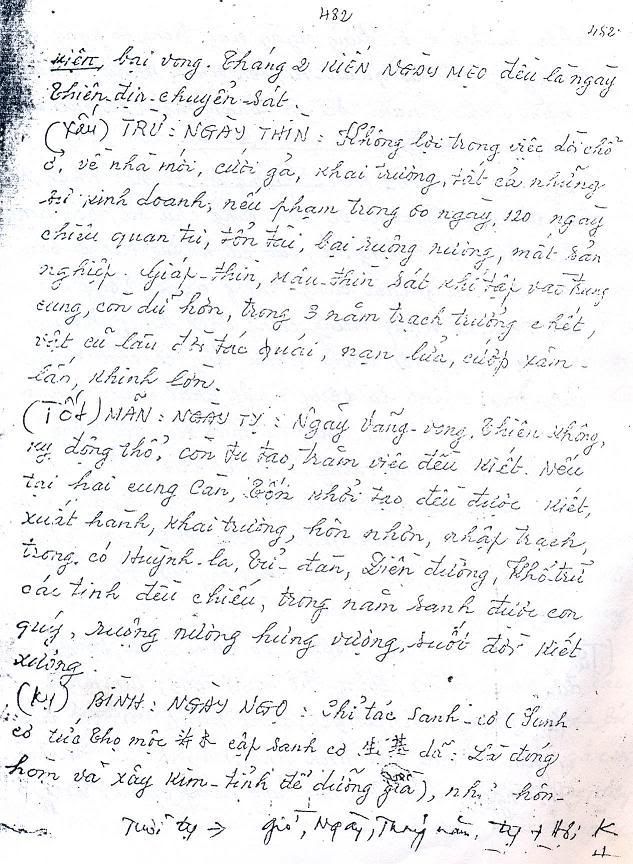 482
482
Kiên, bại vong. Tháng 2 KIẾN NGÀY MẸO đều là ngày
Thiên-địa-chuyển-sát.
(Xấu) TRỪ: NGÀY THÌN: Không lợi trong việc dời chỗ
ở, về nhà mới, cưới gả, khai trương, tất cả những
sự kinh doanh, nếu phạm trong 60 ngày, 120 ngày
chiêu quan tư, tổn tài, bại ruộng nương, mất sản
nghiệp. Giáp-thìn, Mậu-thìn sát khí tập vào trung
cung, còn dữ hơn, trong 3 năm trạch trưởng chết,
vật cũ lâu đời tác quái, nạn lửa, cướp xâm-
lấn, khinh lờn.
(TỐT) MÃN: NGÀY TỴ: Ngày Vãng-vong, Thiên không,
Kỵ động thổ, còn tu tạo, trăm việc đều Kiết. Nếu
tại hai cung Càn, Tốn khởi tạo đều được Kiết,
xuất hành, khai trương, hôn nhơn, nhập trạch,
trong có Huỳnh-la, Tử-đàn, Điền đường, Khố trữ
các tinh đều chiếu, trong năm sanh được con
quý, ruộng nương hưng vượng, suốt đời Kiết
xương.
(Kỵ) BÌNH: NGÀY NGỌ: Chỉ tác sanh-cơ (Sanh
cơ tức thọ mộc cập sanh cơ 生基 dã: Là đóng
hòm và xây Kim-tỉnh để dưỡng già), như hôn-
Tuổi tỵ → giờ, Ngày, Tháng năm, tỵ + Hợi K